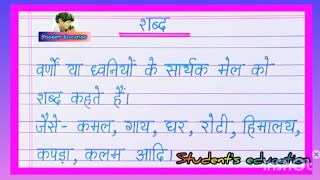 Student's Education
शब्द
वर्णो या ध्वनियों के सार्थक मेल को
शब्द कहते हैं।
जैसे- कमल, गाय, घर, रोटी, हिमालय,
कपड़ा, कलम आदि।
Student's education